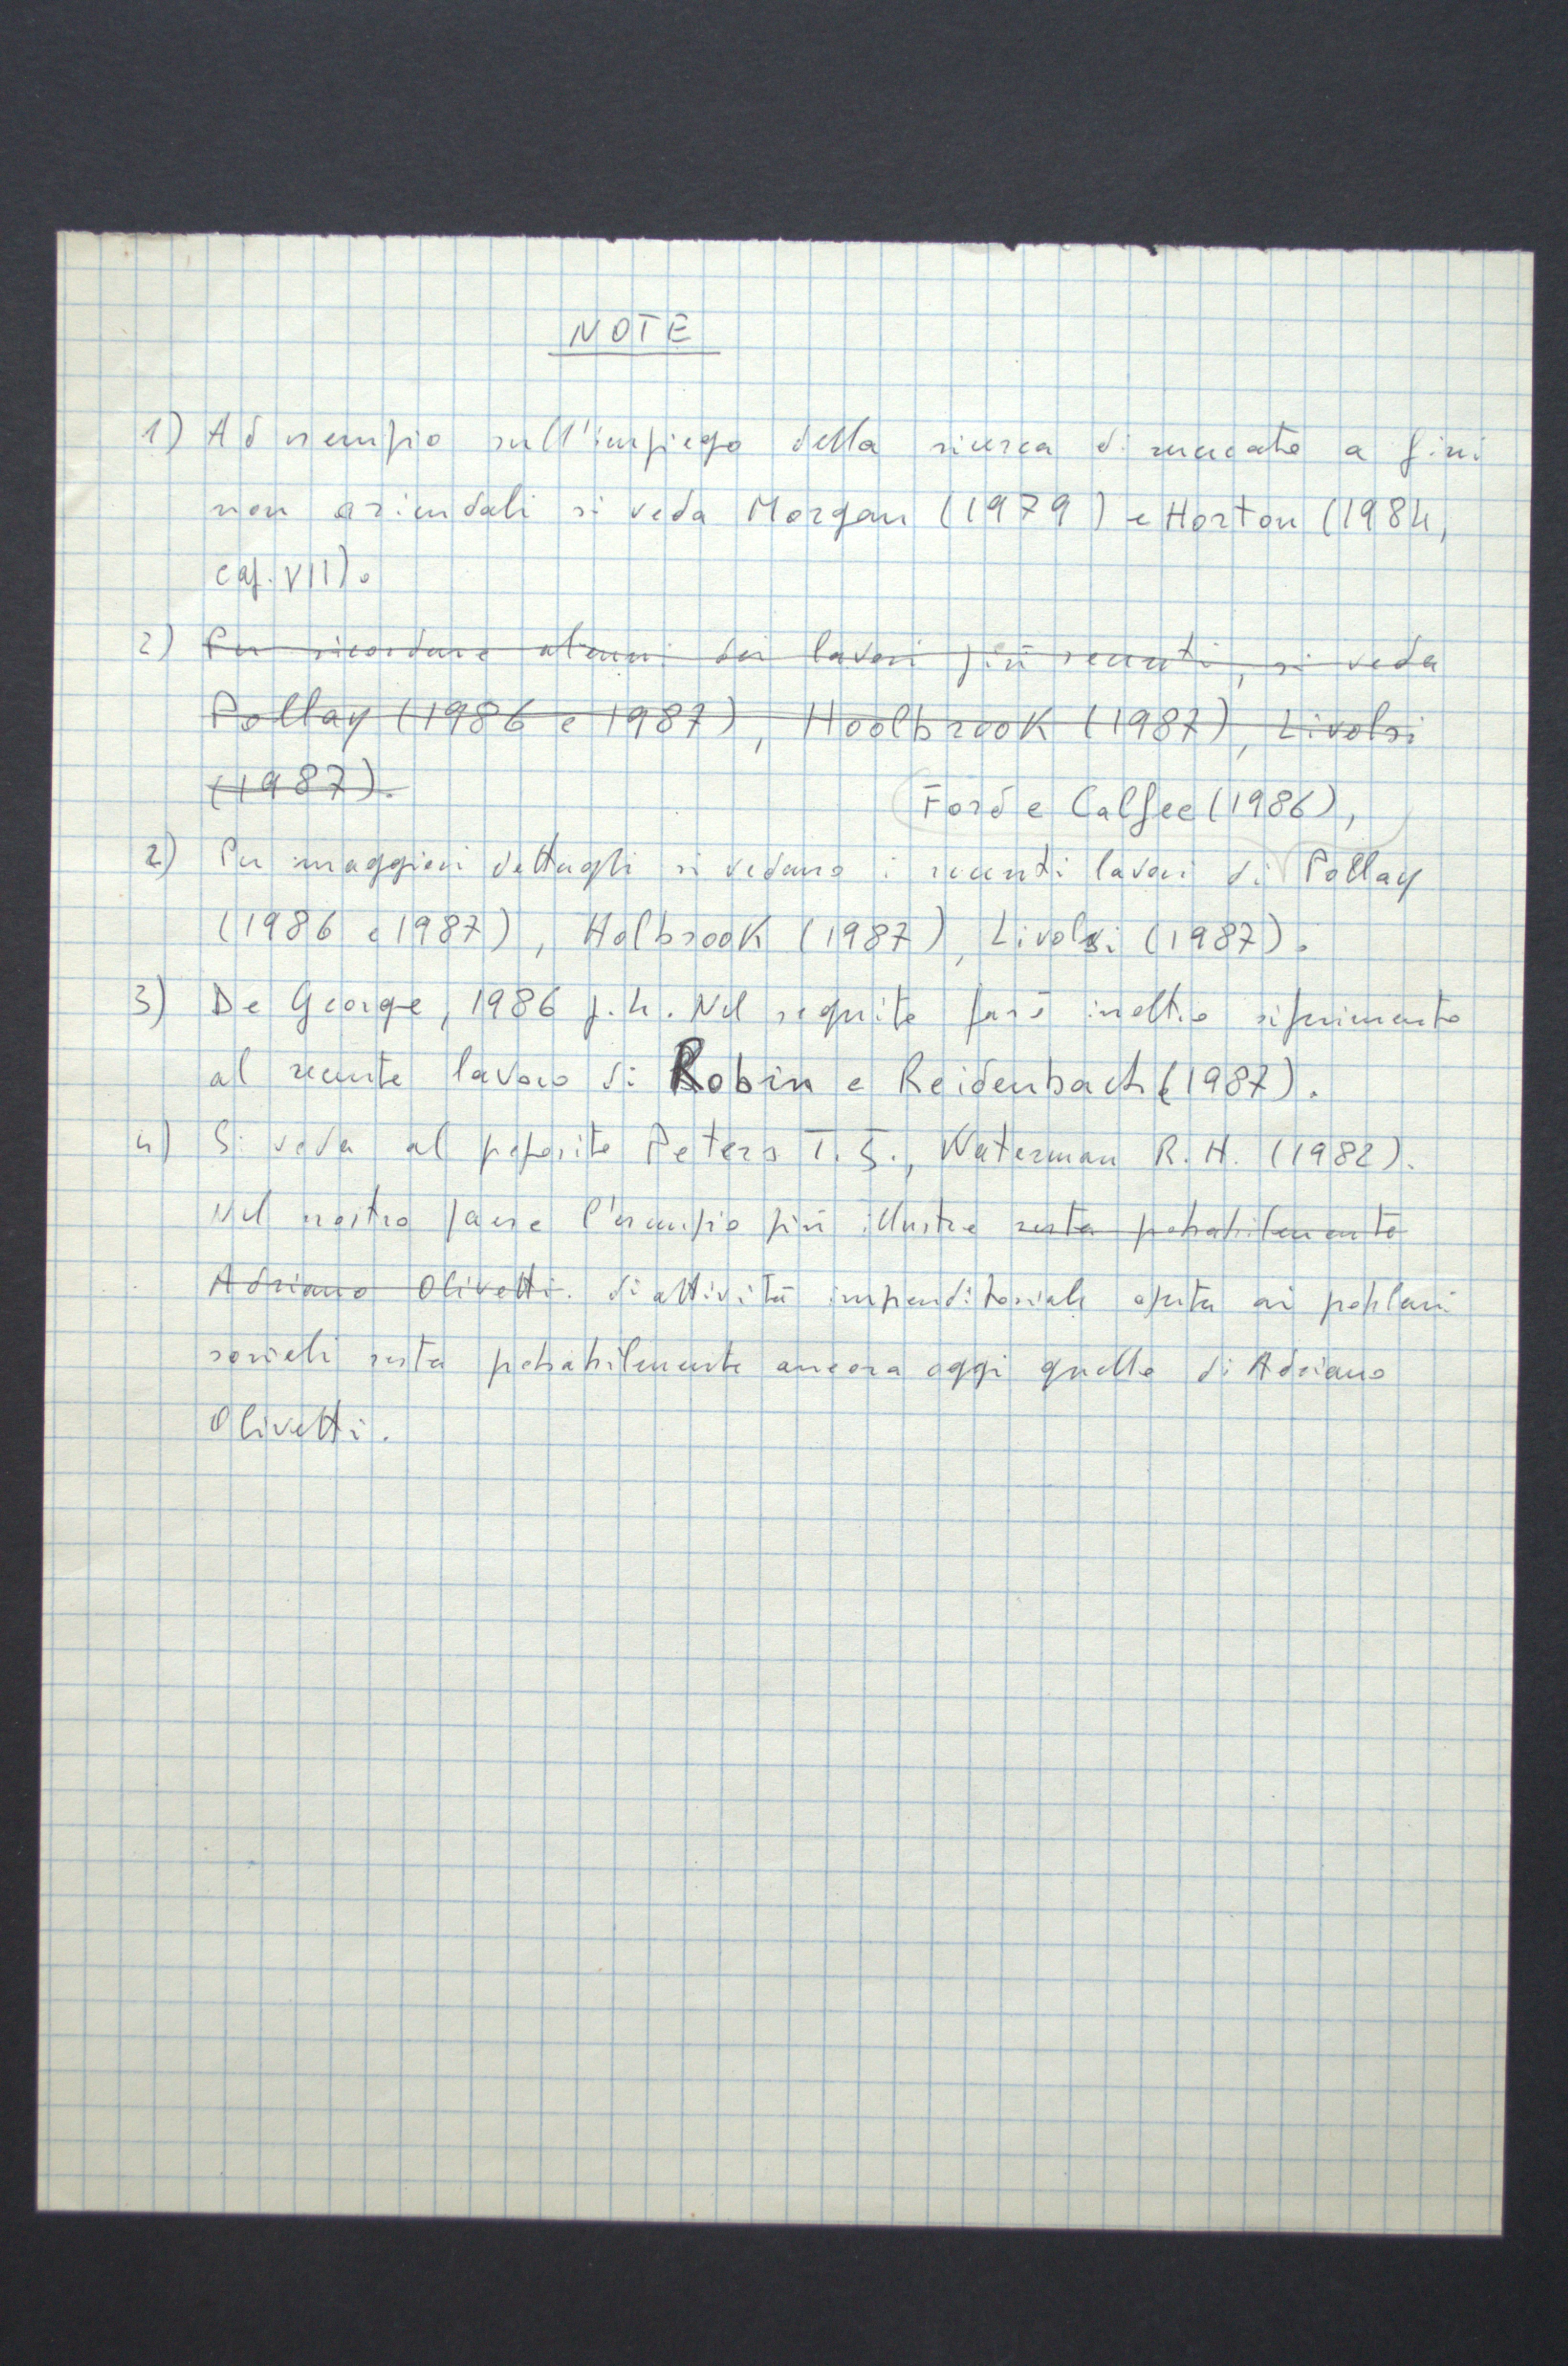 NOTE
1) Ad esempio sull'impiego della ricerca di mercato a fini
non aziendali si veda Morgan (1979) e Horton (1984,
cap. VII).
2) Per ricordare alcuni dei lavori più recenti, si veda
Pollay (1986 e 1987), Hoolbrook (1987), Livolsi
(1987).
Ford e Calfee (1986),
2) Per maggiori dettagli si vedano i recenti lavori di Pollay
(1986 e 1987), Holbrook (1987), Livolsi (1987).
3) De George, 1986 p. 4. Nel seguito farò inoltre riferimento
al recente lavoro di Robin e Reidenbach (1987).
4) Si veda al proposito Peters T. J., Waterman R. H. (1982).
Nel nostro paese l'esempio più illustre resta probabilmente
Adriano Olivetti. di attività imprenditoriale aperta ai problemi
sociali resta probabilmente ancora oggi quello di Adriano
Olivetti.